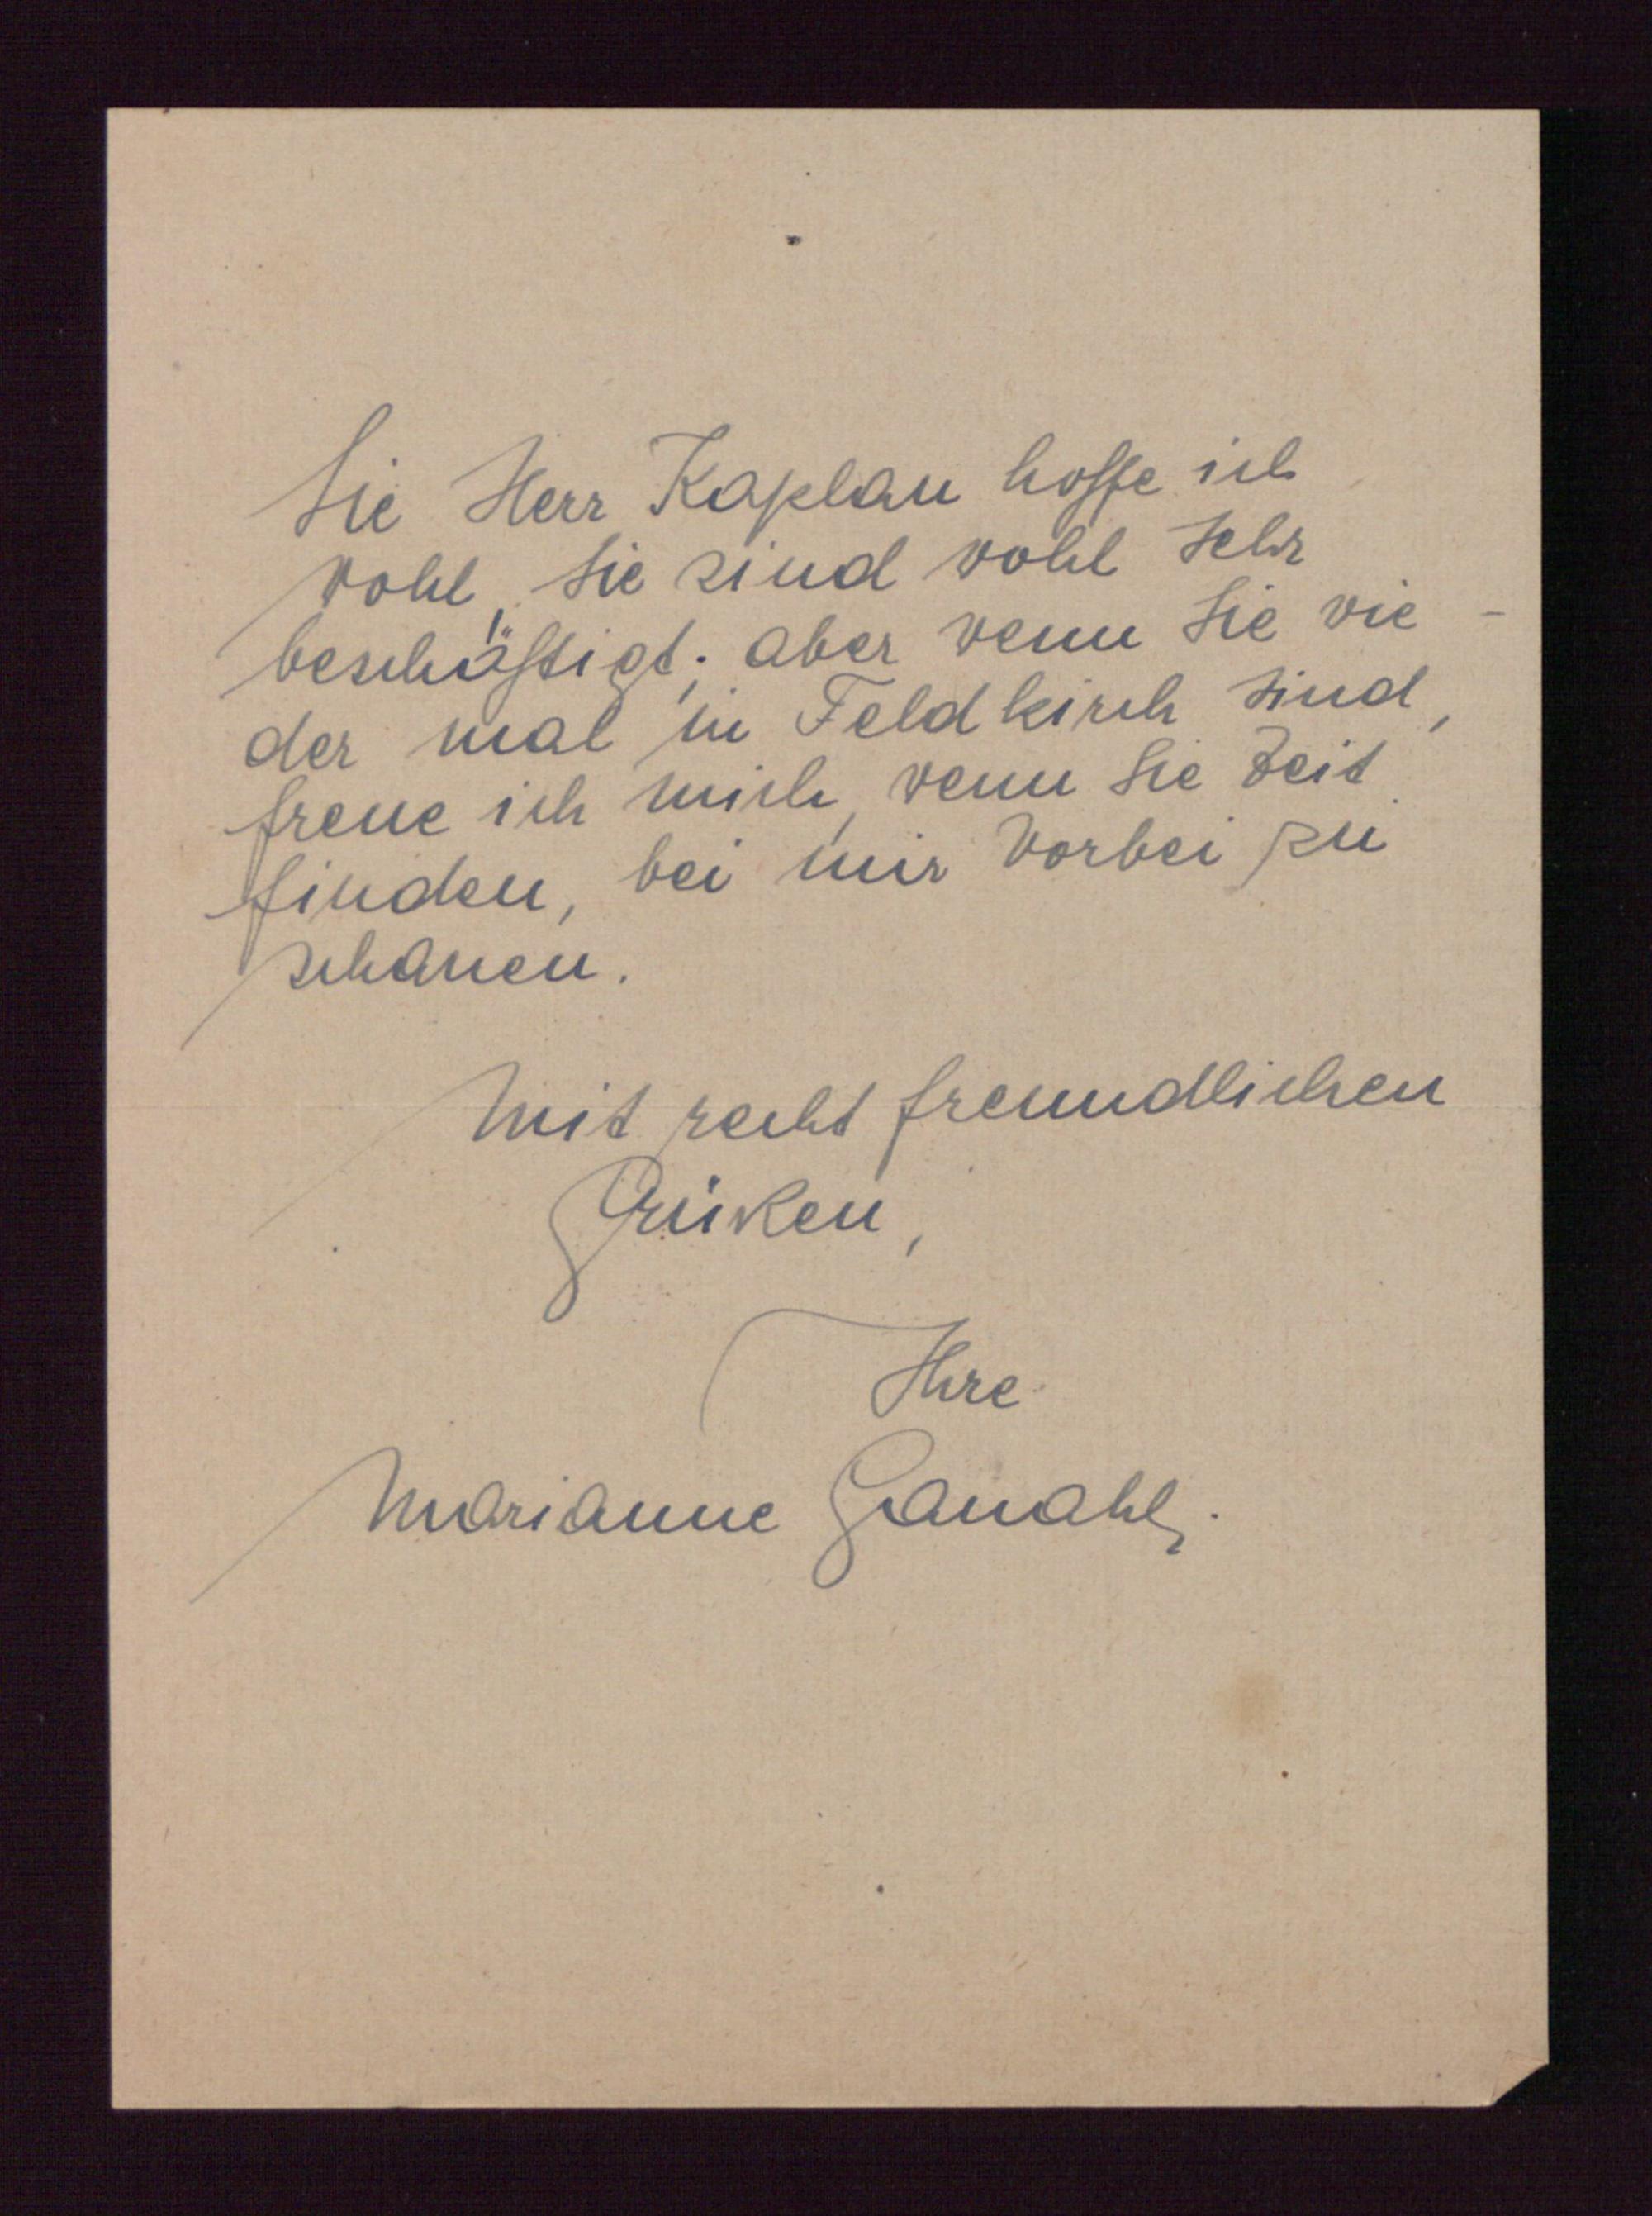 Sie Herr Kaplan hoffe ich
wohl, Sie sind wohl sehr
beschäftigt; aber wenn Sie wie-
der mal in Feldkirch sind,
freue ich mich, wenn Sie Zeit
finden, bei mir vorbei zu
schauen.
Mit recht freundlichen
Grüßen,
Ihre
Marianne Ganahl.